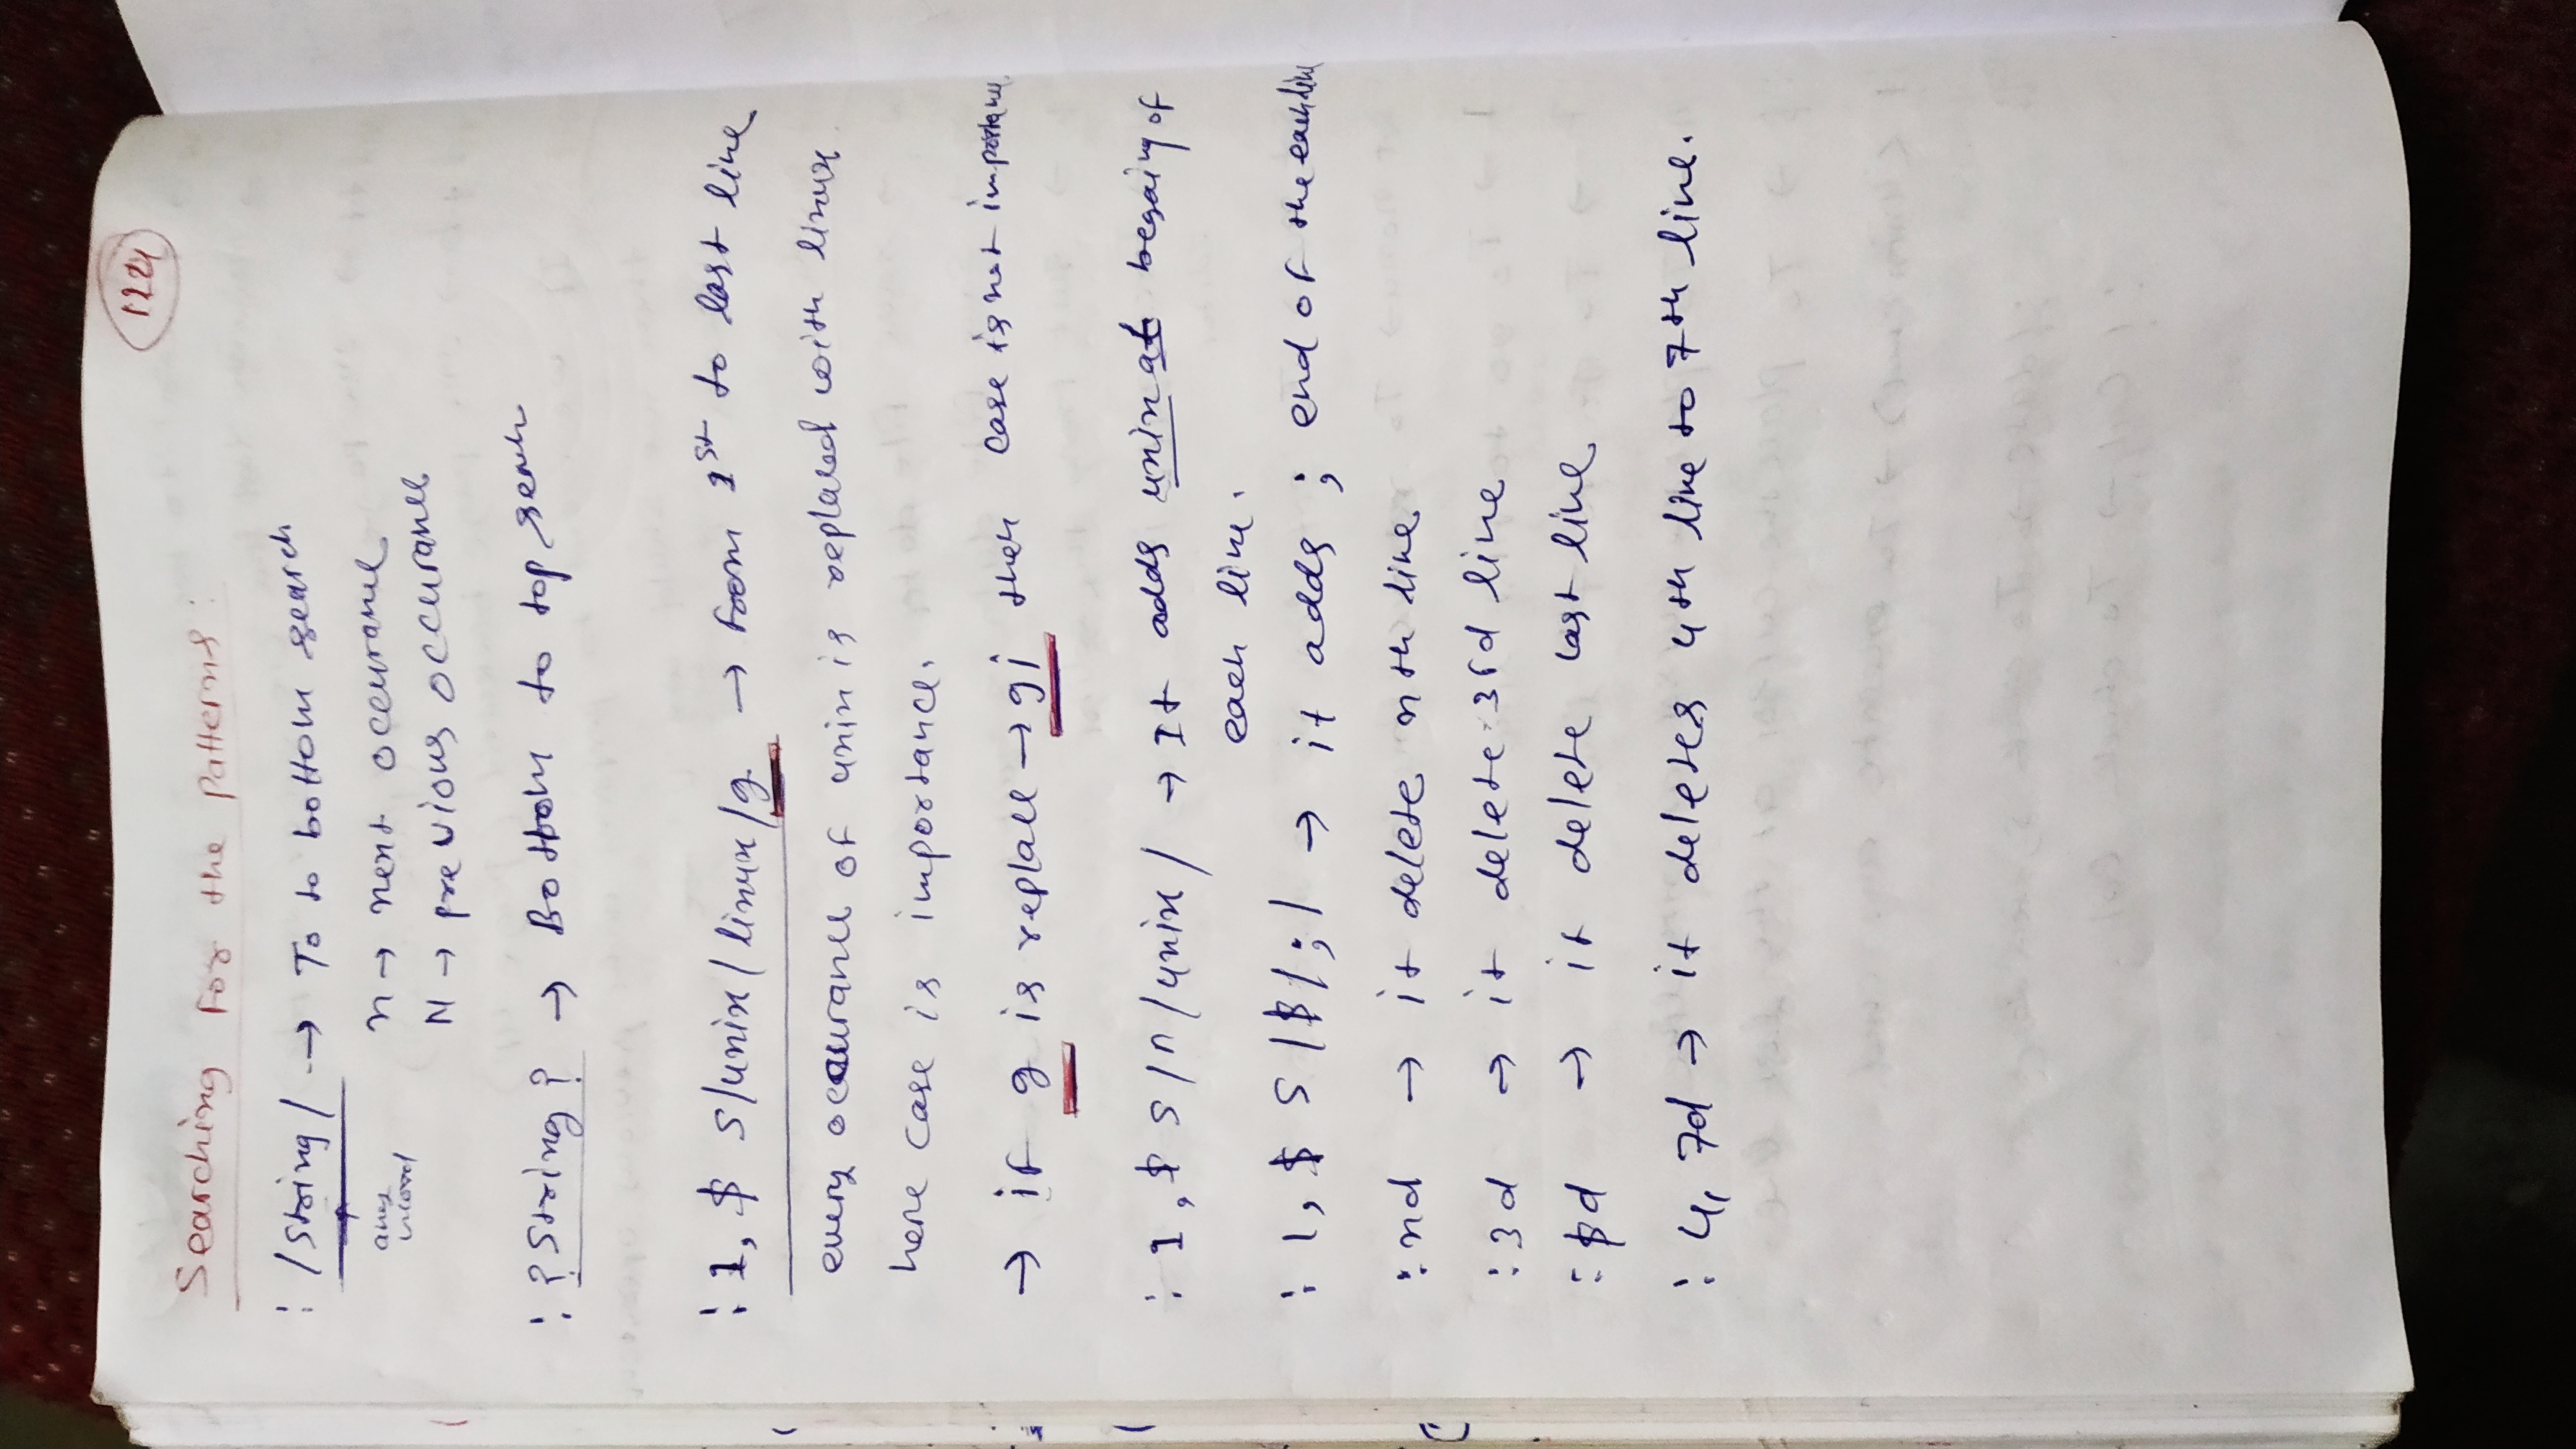 122
Searching For the Patterns:
: /String/ → To to bottom search
any word
n → next occurance
N → previous occurance
: ?String? → Bottom to top search
: 1,$ s/unix/linux/g → From 1st to last line
every occurance of unix is replaced with linux
here case is importance.
→ if g is replace → gi then case is not importance.
: 1,$ s/^/unix/ → It adds unix at begaing of
each line.
: 1,$ s/$/;/ → it adds ; end of the each line
: nd → it delete nth line
: 3d → it delete 3rd line
: $d → it delete last line
: 4,7d → it deletes 4th line to 7th line.